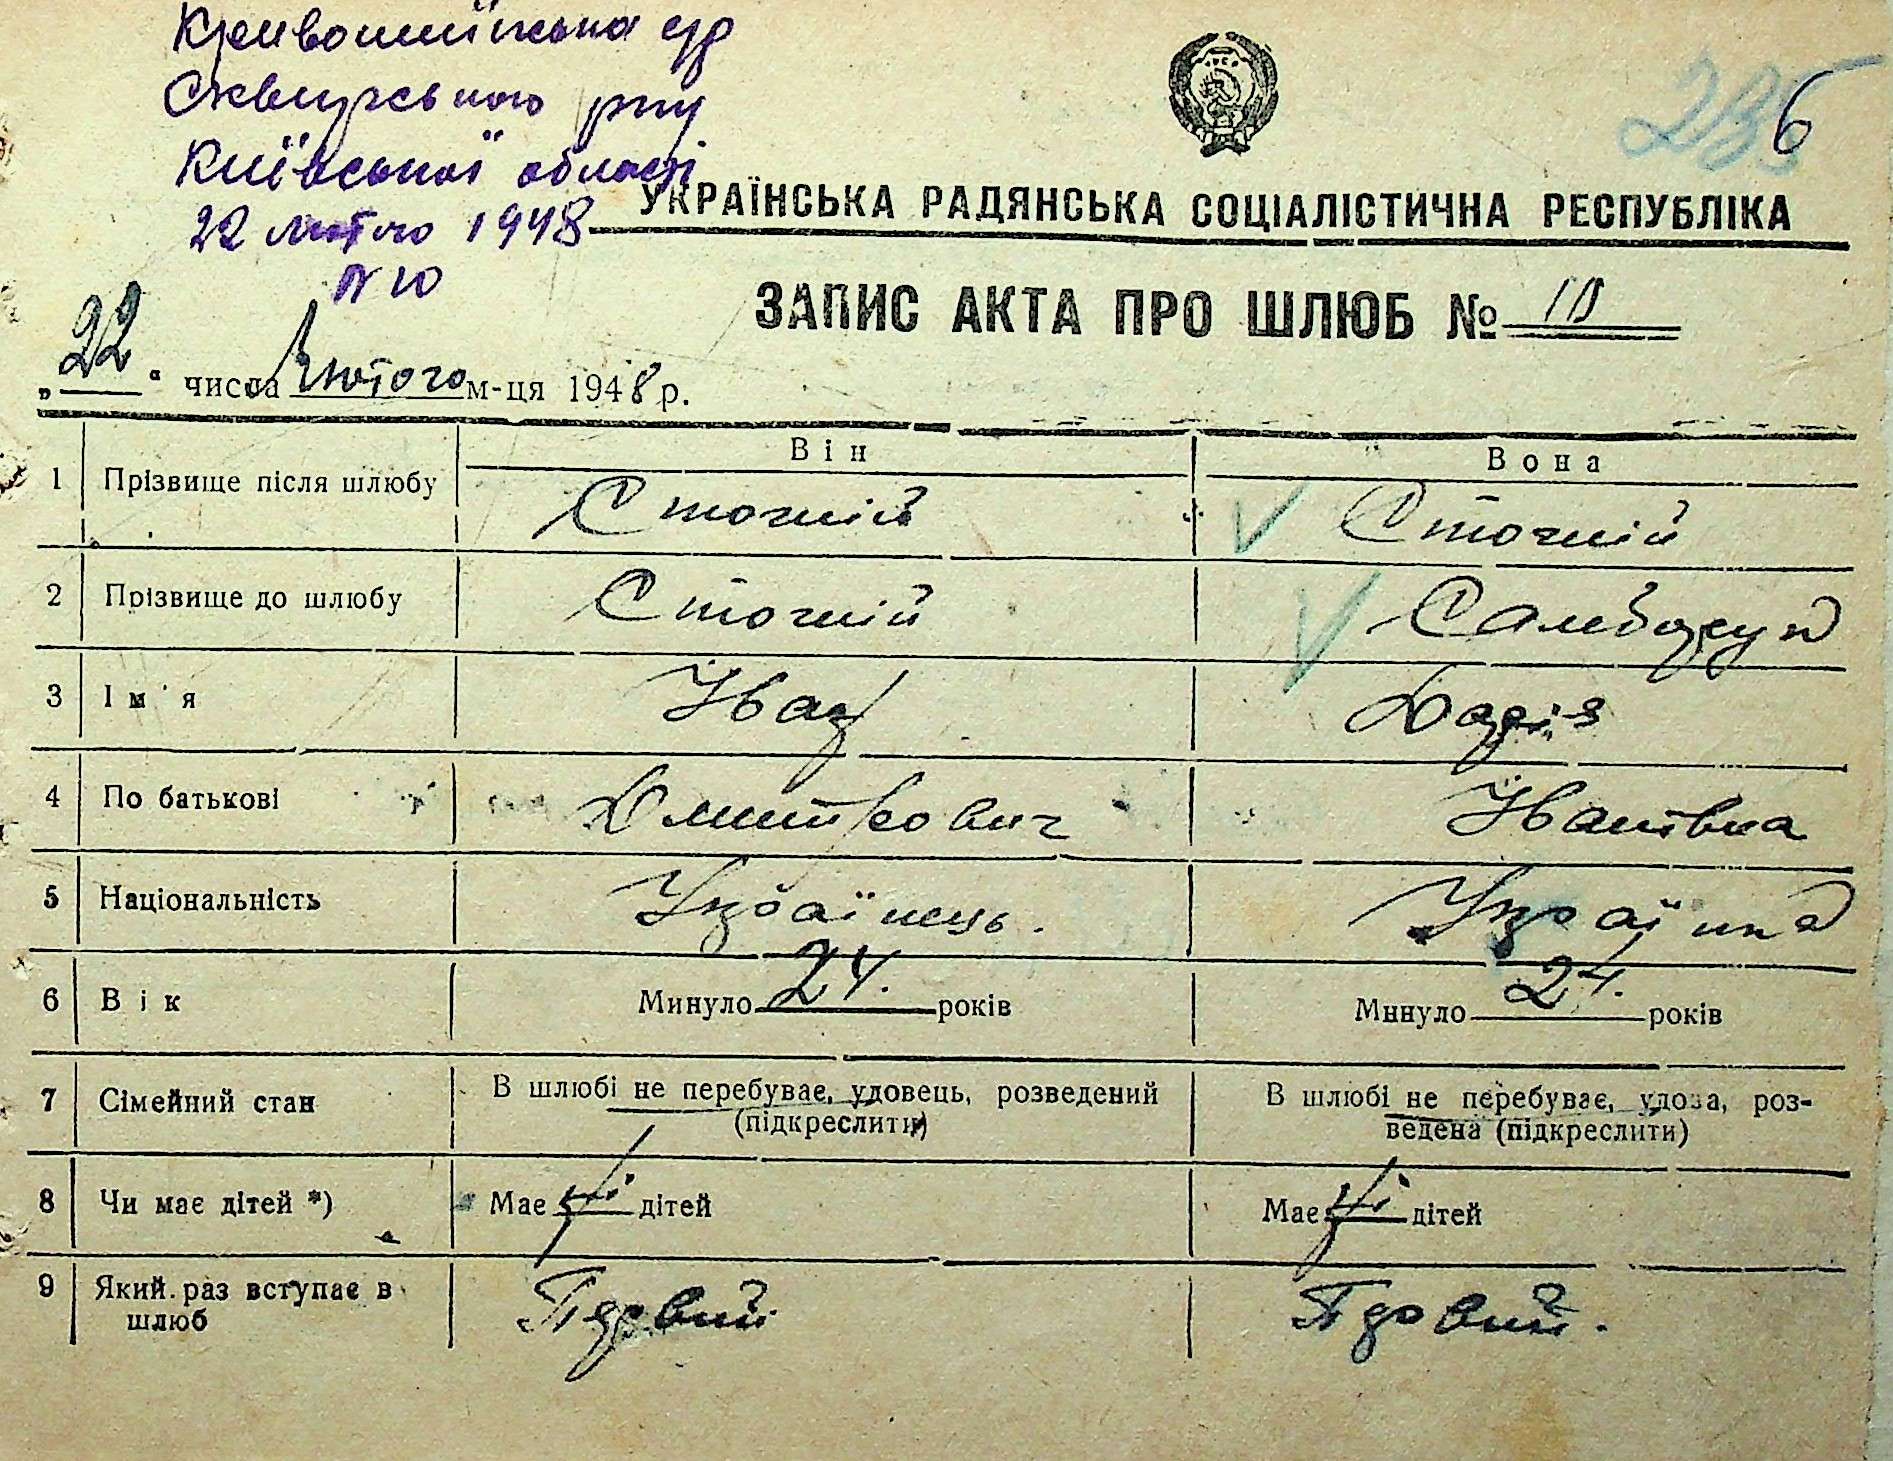 Кривошиїнська с/р
Сквирського р-ну
Київської області
22 лютого 1948
N 10
236
УКРАЇНСЬКА РАДЯНСЬКА СОЦІАЛІСТИЧНА РЕСПУБЛІКА
ЗАПИС АКТА ПРО ШЛЮБ № 10
„22“ числа Лютого м-ця 1948 р.
Він Вона
1 Прізвище після шлюбу Сточній Сточній
2 Прізвище до шлюбу Сточній
3 Ім'я Іван Дарія
4 По батькові Дмитрович Іванівна
5 Національність Українець. Українка
6 Вік Минуло 24. років Минуло 24. років
7 Сімейний стан В шлюбі не перебуває, удовець, розведений (підкреслити) В шлюбі не перебуває, удова, роз-
ведена (підкреслити)
8 Чи має дітей *) Має дітей Має дітей
9 Який раз вступає в шлюб Первий Первий.